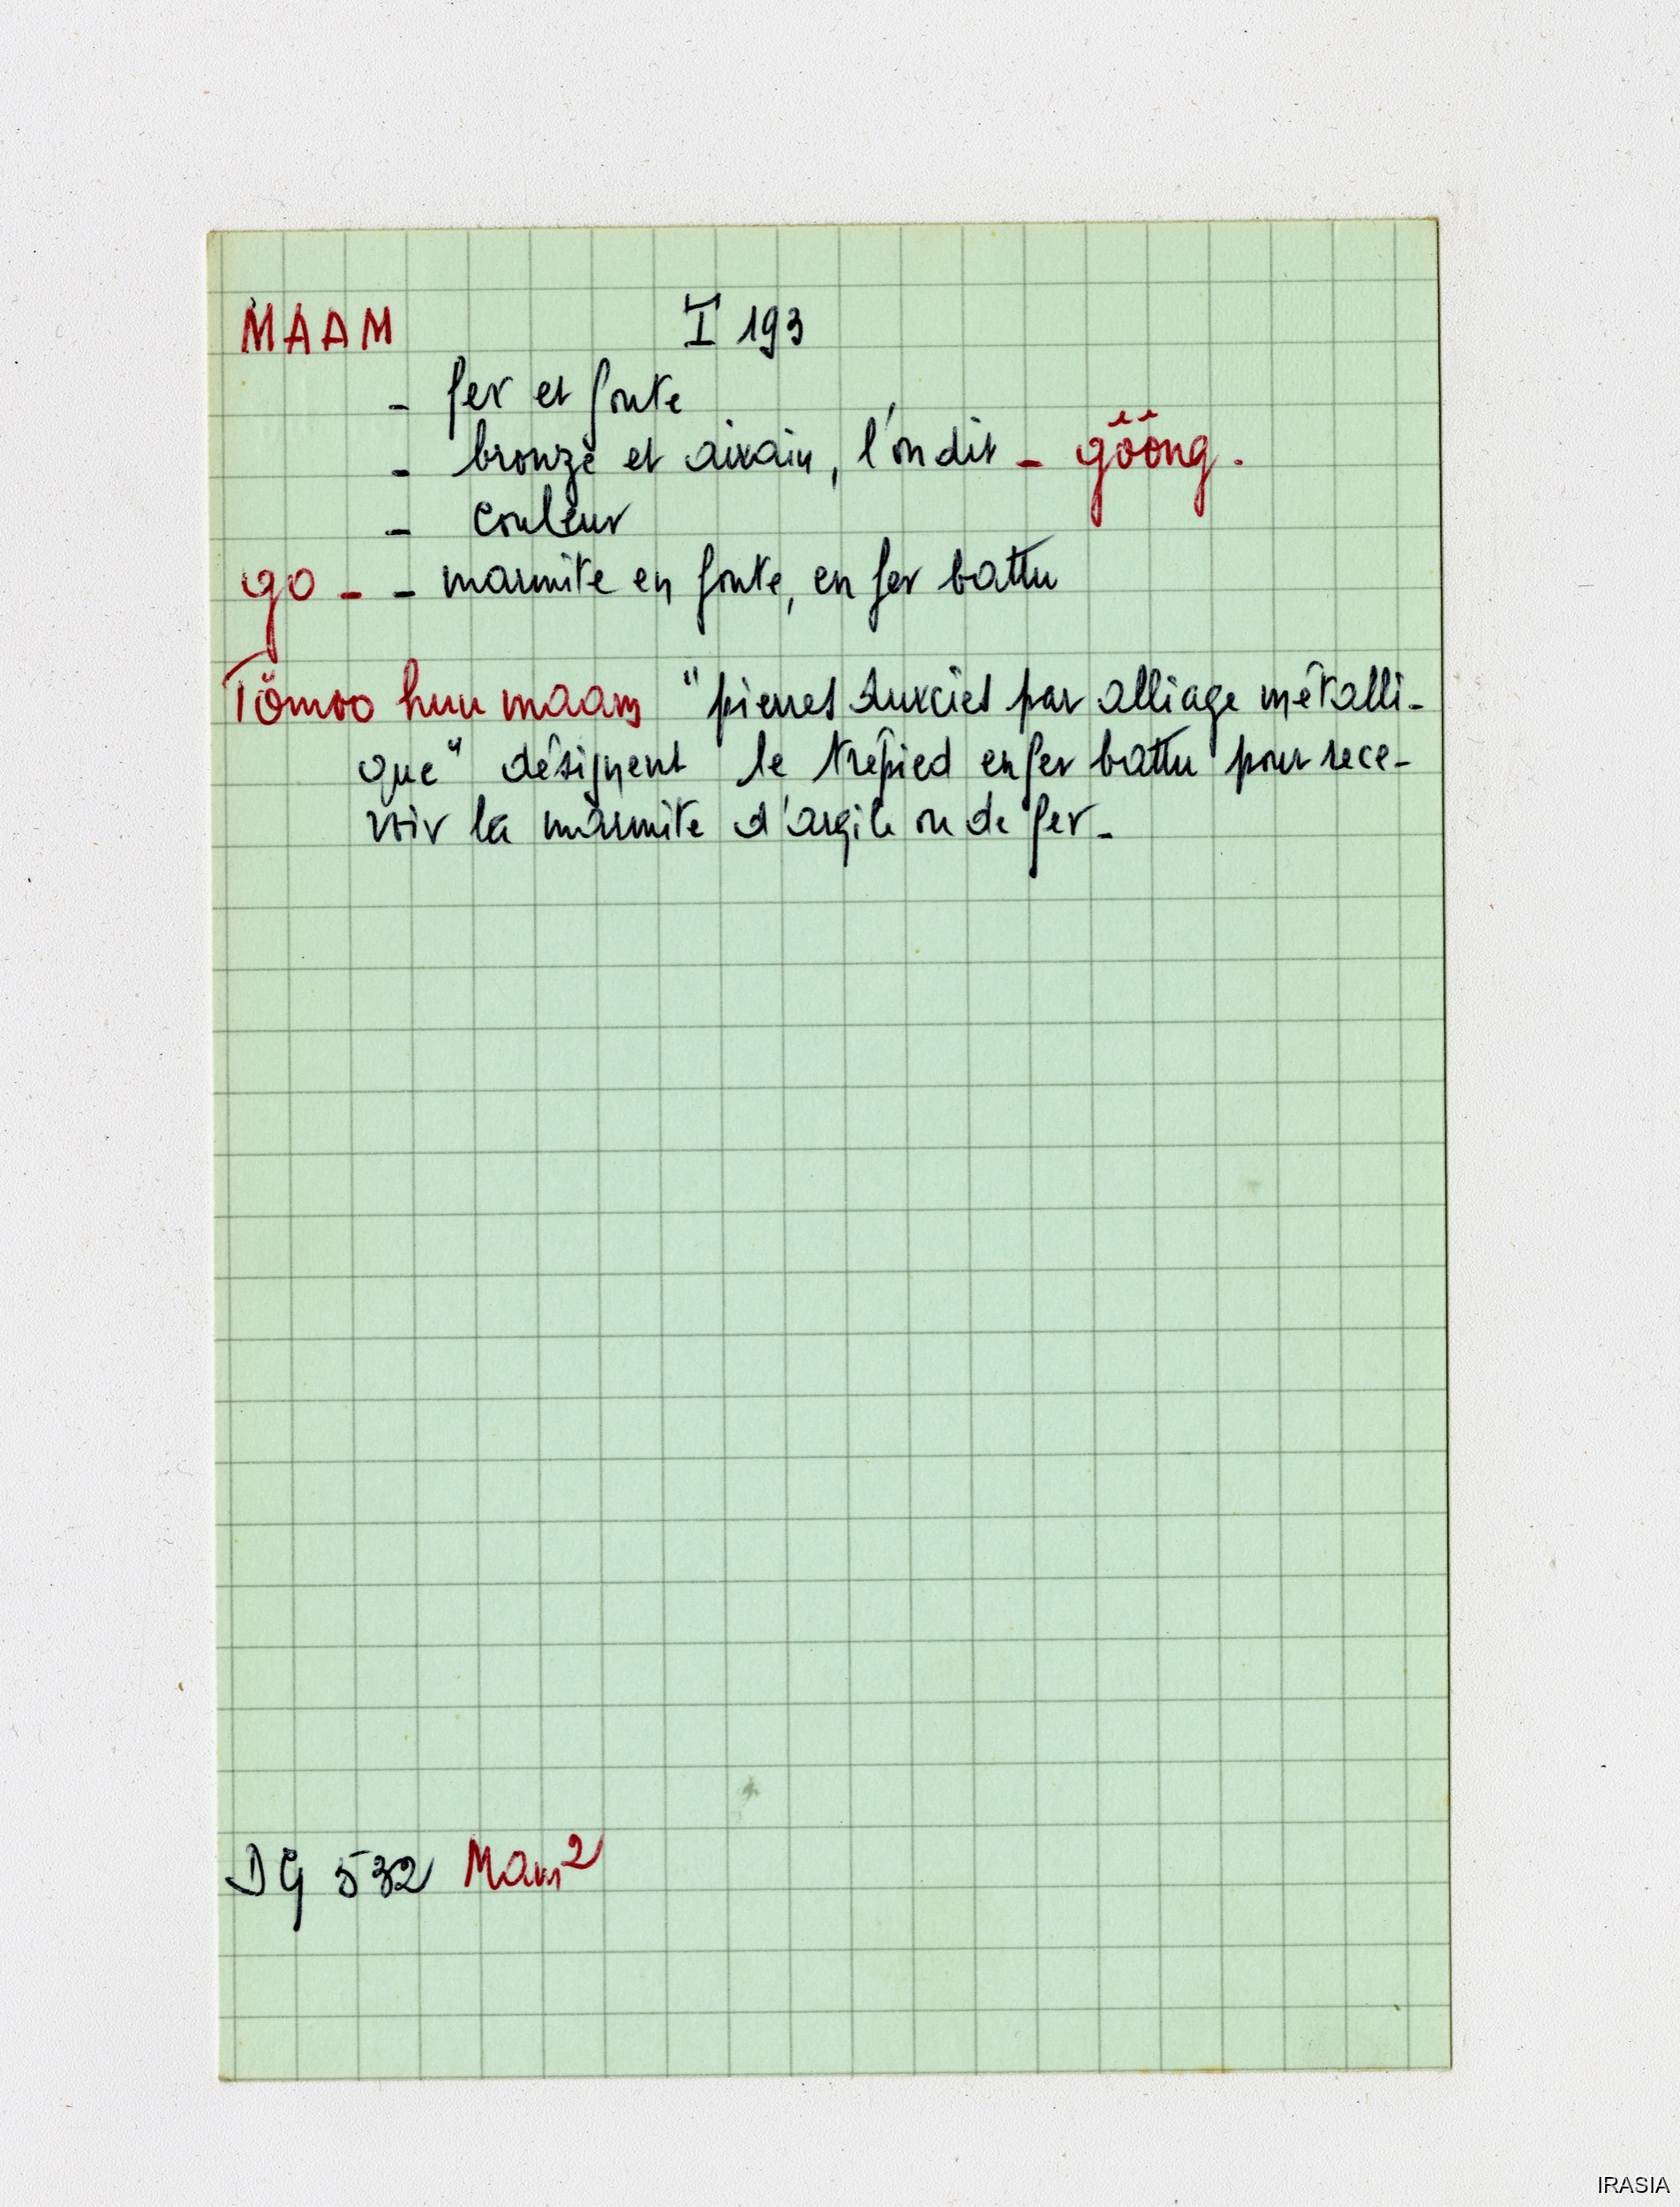 MAAM I 193
- fer et fonte
- bronze et airain, l'on dit - gôông.
- couleur
go - - marmite en fonte, en fer battu
Tömoo huu maam "pierres durcies par alliage métalli-
que" désignent le trépied en fer battu pour rece-
voir la marmite d'argile ou de fer-
DG 532 Mam²
IRASIA